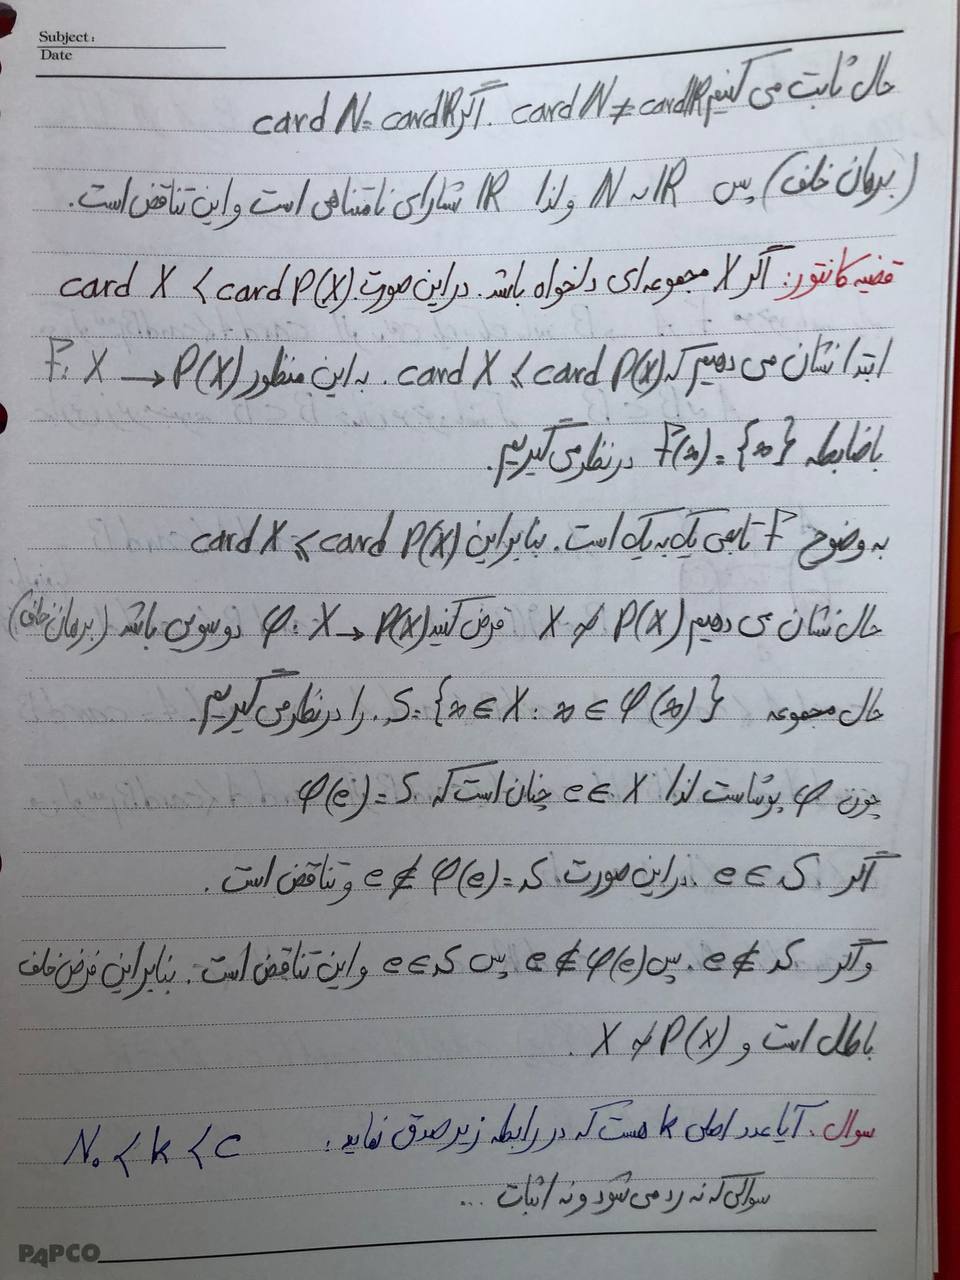 Subject:
Date
حال ثابت می کنیم card N ≠ card R. اگر card N = card R
(برهان خلف) پس N ~ R ولذا R شمارای نامتناهی است و این تناقض است.
قضیه کانتور: اگر X مجموعه ای دلخواه باشد. در این صورت. card X < card P(X)
ابتدا نشان می دهیم که card X ≤ card P(X). به این منظور F: X → P(X)
با ضابطه F(x) = {x} در نظر می گیریم.
به وضوح F تابعی یک به یک است. بنابراین card X ≤ card P(X)
حال نشان می دهیم X ≁ P(X) فرض کنید φ: X → P(X) دوسویی باشد (برهان خلف)
حال مجموعه S = {x ∈ X : x ∈ φ(x)}. را در نظر می گیریم.
چون φ پوشاست لذا e ∈ X چنان است که φ(e) = S
اگر e ∈ S. در این صورت e ∉ φ(e) = S و تناقض است.
و اگر e ∉ S. پس e ∉ φ(e) پس e ∈ S و این تناقض است. بنابراین فرض خلف
باطل است و X ≁ P(X).
سوال: آیا عدد اصلی k هست که در رابطه زیر صدق نماید: N₀ < k < c
سوالی که نه رد می شود و نه اثبات ...
PAPCO